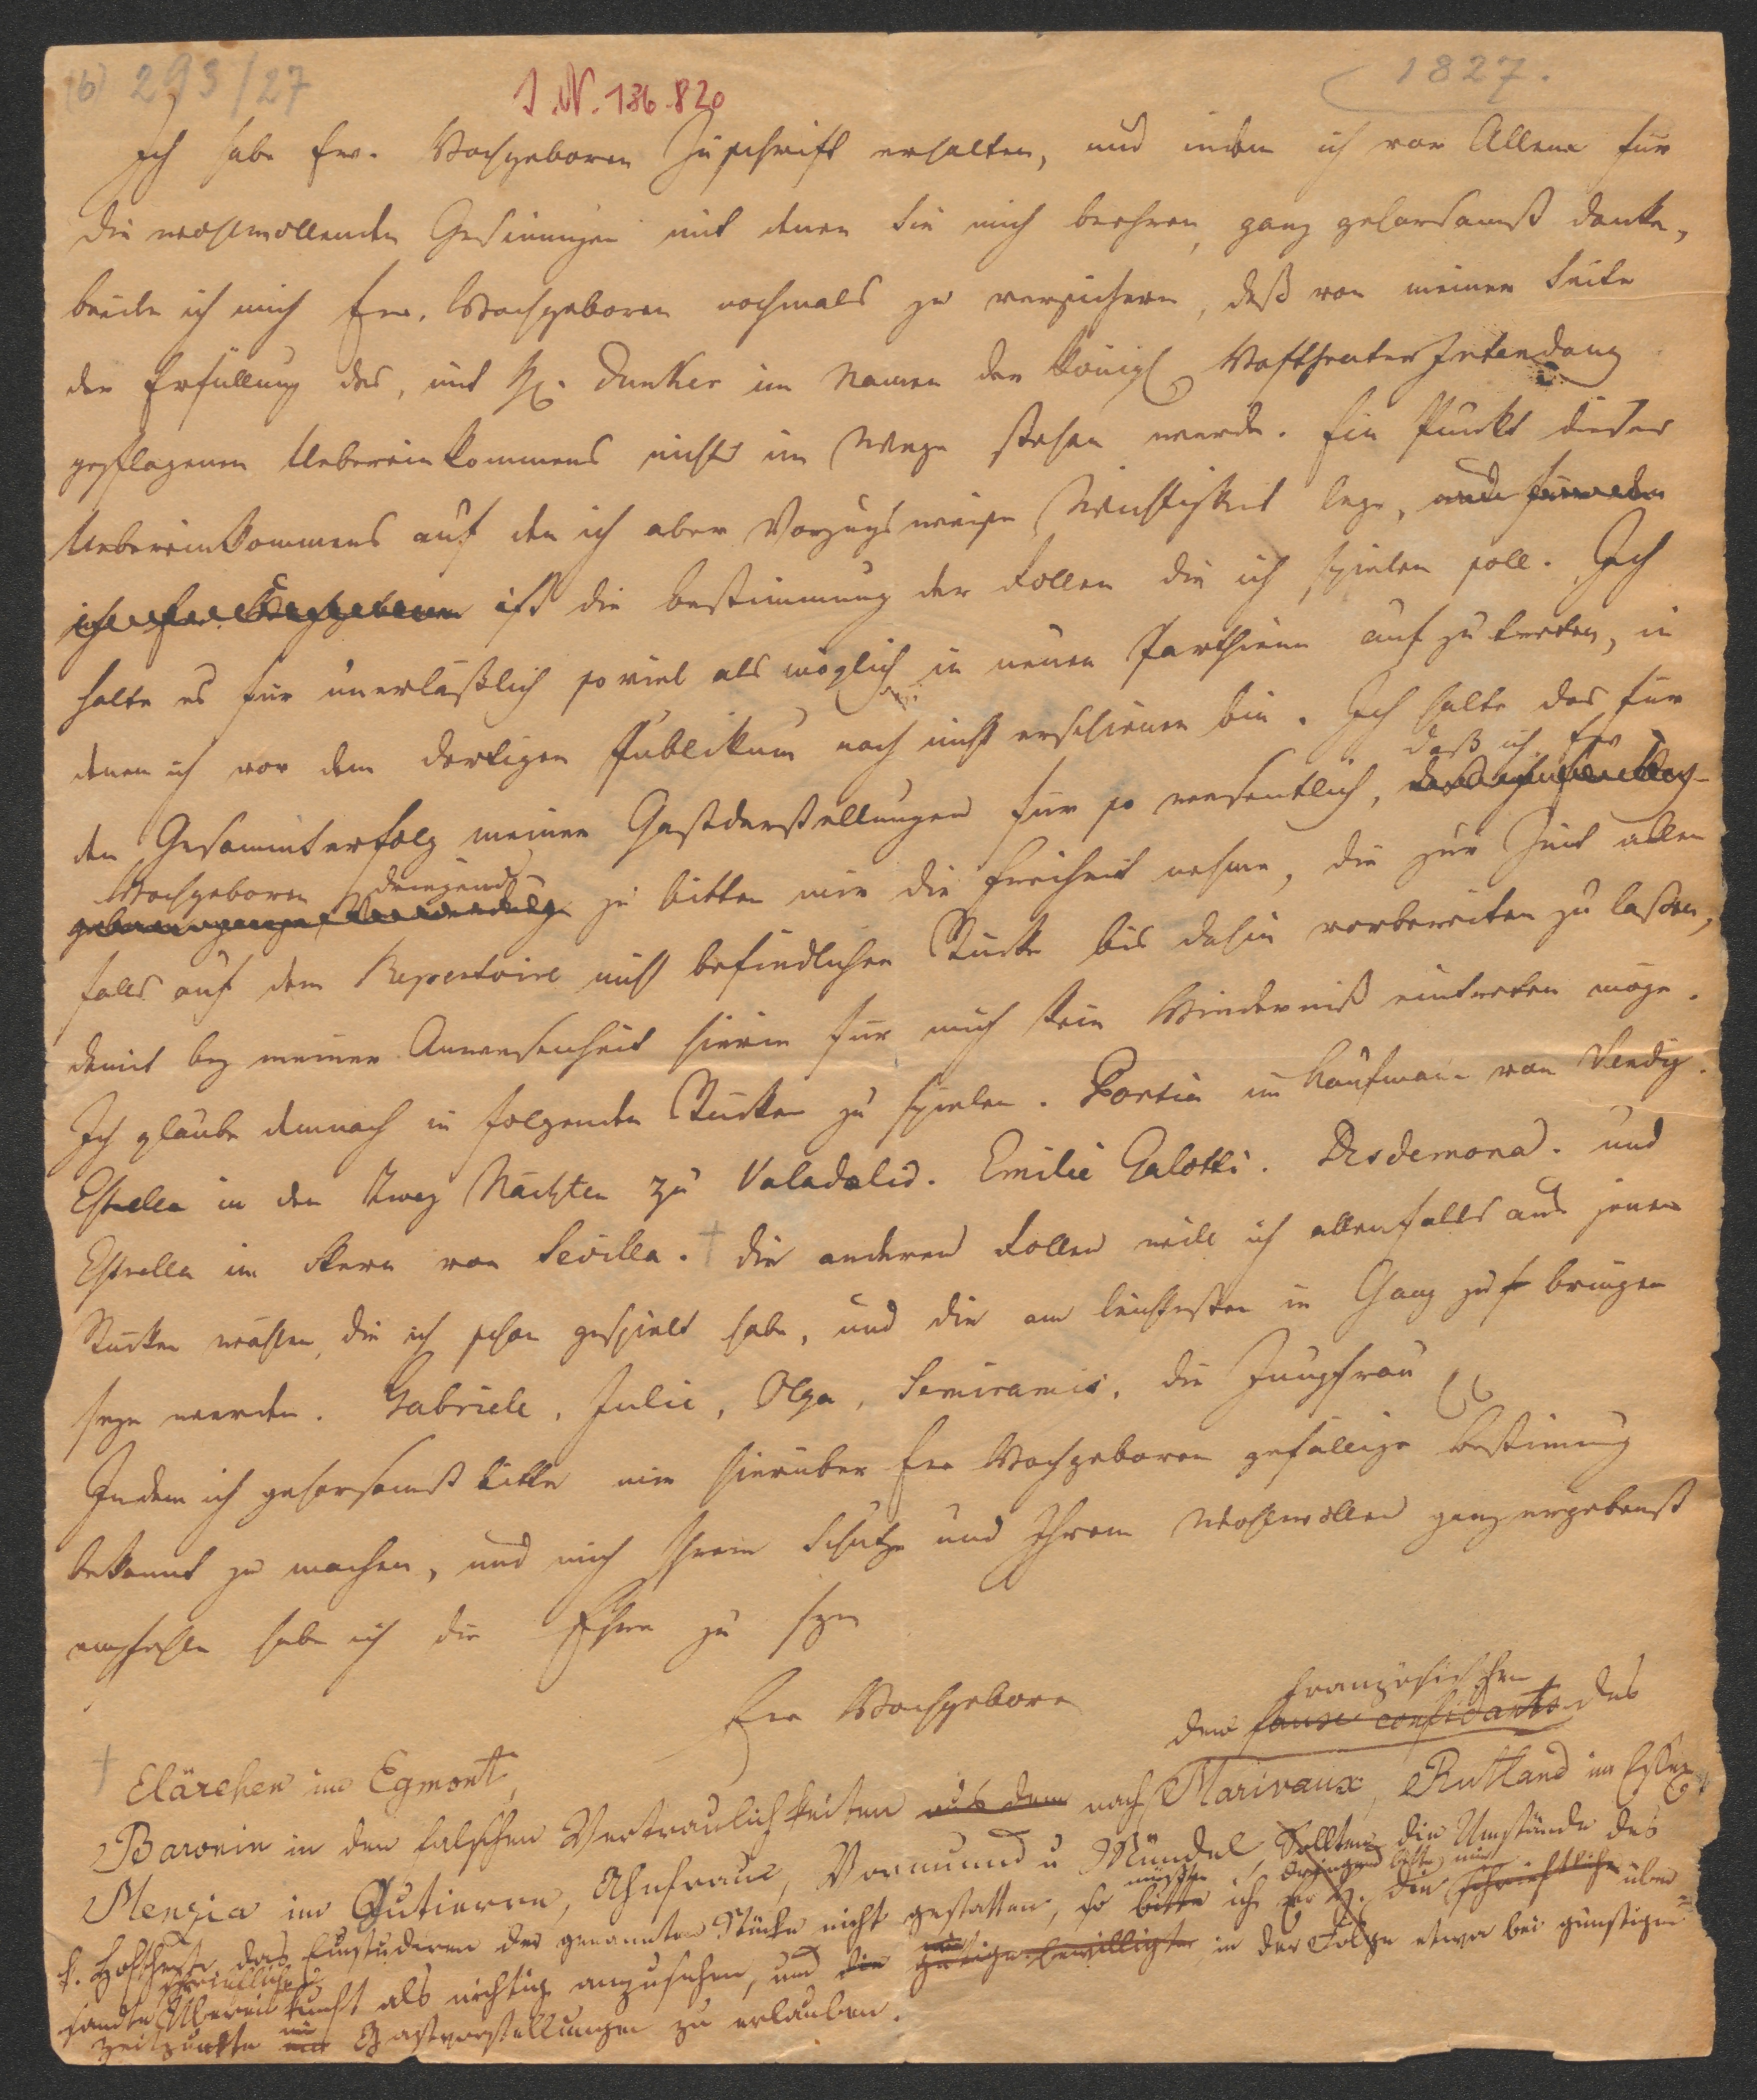 (b) 293/27
I.N. 136.820
1827.
Ich habe Ew. Hochgeboren Zuschrift erhalten, und indem ich vor Allem für
die wohlwollenden Gesinnungen mit denen Sie mich beehren, ganz gehorsamst danke,
beeile ich mich Ew. Hochgeboren nochmals zu versichern, daß von meiner Seite
der Erfüllung des, mit H. Dunker im Namen der Königl Hoftheater Intendanz
gepflogenen Uebereinkommens nichts im Wege stehen werde. Ein Punkt dieses
Uebereinkommens auf den ich aber Vorzugsweise Wichtigkeit lege, und
ich Ew. Hochgeboren ist die Bestimmung der Rollen die ich spielen soll. Ich
halte es für unerläßlich so viel als möglich in neuen Parthieen auf zu tretten, in
denen ich vor dem dortigen Publikum noch nicht erschienen bin. Ich halte das für
den Gesammterfolg meiner Gastdarstellungen für so wesentlich, daß ich Ew
Hochgeboren dringend zu bitten mir die Freiheit nehme, die zur Zeit allen
falls auf dem Repertoire nicht befindlichen Stücke bis dahin vorbereiten zu lassen,
damit bey meiner Anwesenheit hierin für mich kein Hinderniß eintretten möge.
Ich glaube demnach in folgenden Stücken zu spielen. Portia im Kaufmann von Venedig.
Estrella in den Zwey Nächten zu Valadolid. Emilie Galotti. Desdemona. und
Estrella im Stern von Sevilla. † die anderen Rollen will ich allenfalls aus jenen
Stücken wählen, die ich schon gespielt habe, und die am leichtesten in Gang zu bringen
seyn werden. Gabriele, Julie, Olga, Semiramis, die Jungfrau
Indem ich gehorsamst bitte mir hierüber Ew Hochgeboren gefällige Bestimung
bekannt zu machen, und mich Ihrem Schutze und Ihrem Wohlwollen ganz ergebenst
empfehle habe ich die Ehre zu seyn
Ew Hochgeboren
französischen
den fausse confidants des
† Clärchen im Egmont,
Baronin in den falschen Vertraulichkeiten aus dem nach Marivaux, Rutland im Essex,
Menzia im Gutierre, Ahnfrau, Vormund u Mündel, Sollten die Umstände des
k. Hoftheate das Einstudiren der genannten Stücke nicht gestatten, so bitte ich Ew H. die schriftliche über
sandte Übereinkunft als nichtig anzusehen, und die gütige bewilligte in der Folge etwa bei günstigen
Zeitpunkte mir Gastvorstellungen zu erlauben.